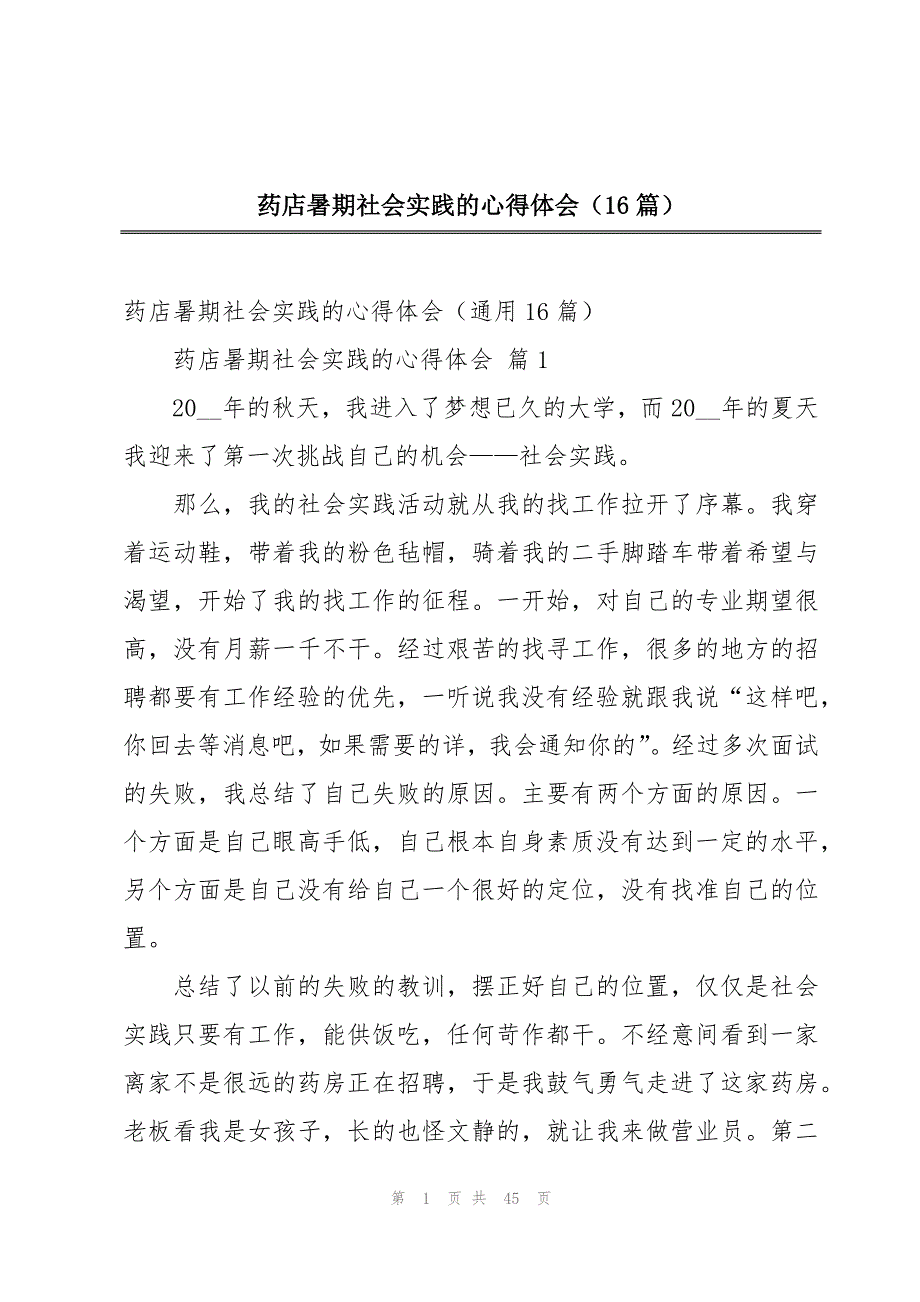 药店暑期社会实践的心得体会（16 篇）
药店暑期社会实践的心得体会（通用 16 篇）
药店暑期社会实践的心得体会 篇 1
20__年的秋天，我进入了梦想已久的大学，而 20__年的夏天
我迎来了第一次挑战自己的机会——社会实践。
那么，我的社会实践活动就从我的找工作拉开了序幕。我穿
着运动鞋，带着我的粉色毡帽，骑着我的二手脚踏车带着希望与
渴望，开始了我的找工作的征程。一开始，对自己的专业期望很
高，没有月薪一千不干。经过艰苦的找寻工作，很多的地方的招
聘都要有工作经验的优先，一听说我没有经验就跟我说“这样吧，
你回去等消息吧，如果需要的详，我会通知你的”。经过多次面试
的失败，我总结了自己失败的原因。主要有两个方面的原因。一
个方面是自己眼高手低，自己根本自身素质没有达到一定的水平，
另个方面是自己没有给自己一个很好的定位，没有找准自己的位
置。
总结了以前的失败的教训，摆正好自己的位置，仅仅是社会
实践只要有工作，能供饭吃，任何苛作都干。不经意间看到一家
离家不是很远的药房正在招聘，于是我鼓气勇气走进了这家药房。
老板看我是女孩子，长的也怪文静的，就让我来做营业员。第二
第 1 页 共 45 页